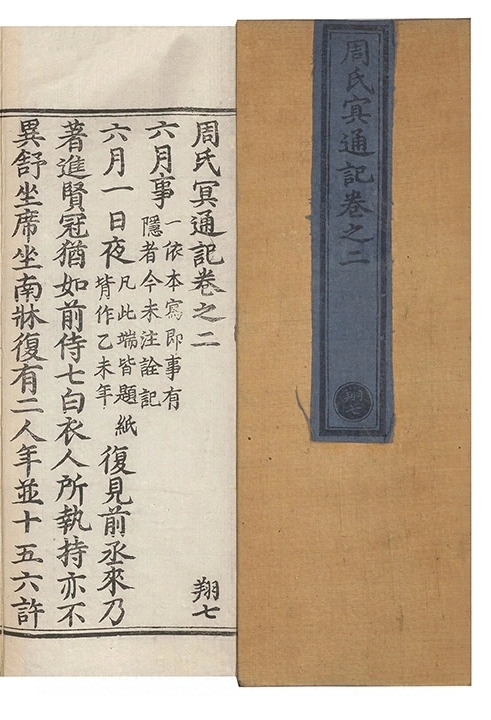 周氏㝠通記卷之二
翔七
周氏冥通記卷之二
翔七
六月事
一依本寫即事有
隱者今未注詮記
六月一日夜
凡此端皆題紙
背作乙未年
復見前丞來乃
著進賢冠猶如前侍七白衣人所執持亦不
異舒坐席坐南牀復有二人年並十五六許